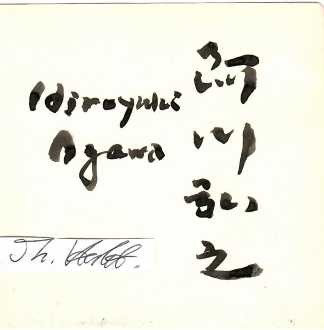 Hiroyuki
Agawa
阿川弘之
Th.